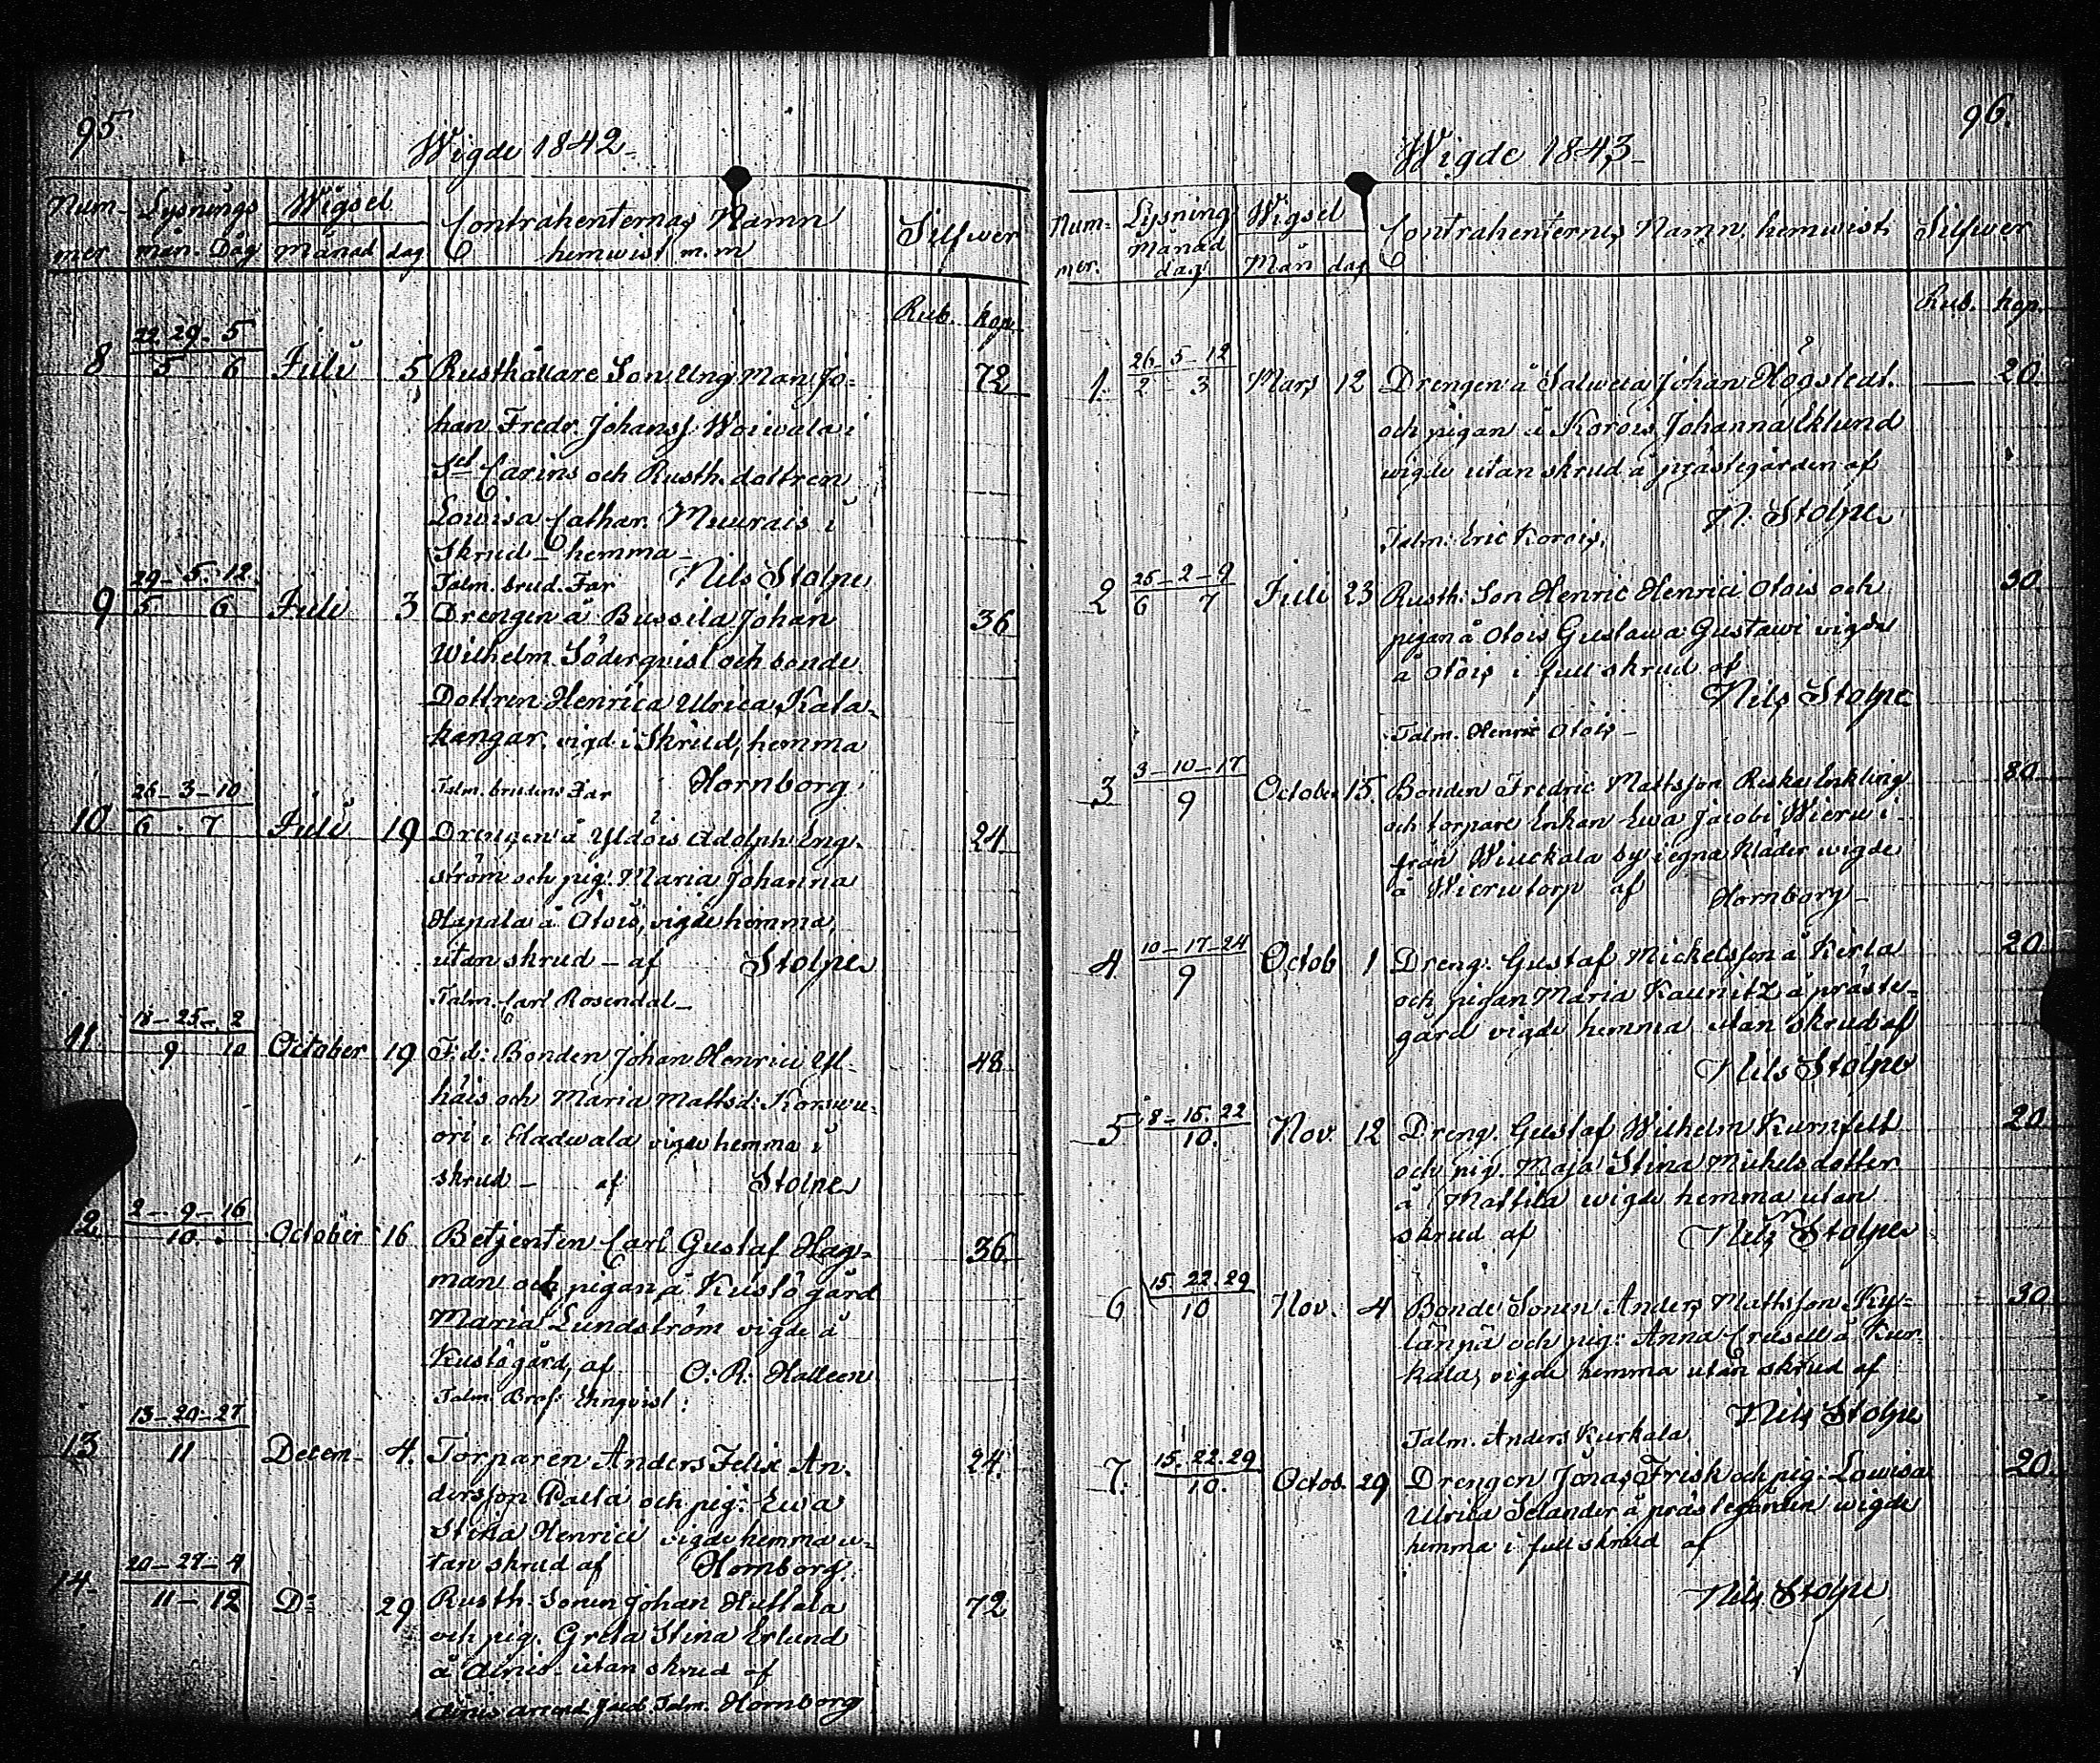 95
Wigde 1842
Num-
mer
Lysnings
mån. Dag
Wigsel
Månad dag
Contrahenternas Namn
hemwist m.m
Silfwer
Rub. kop.
8
22 29. 5
5 6
Juli 5
Rusthållare Son Ung Man Jo-
72
han Fredr. Johanss. Woiwala i
Sct Carins och Rusth. dottren
Lowisa Cathar. Muurais i
Skrud – hemma –
Talm. brud. Far Nils Stolpe
9
29– 5. 12.
5 6
Juli 3
Drengen å Bussila Johan
36
Wilhelm Söderqvist och bonde
Dottren Henrica Ulrica Kala-
kangar. vigd i Skrud, hemma
Talm. brudens Far Hornborg
10
26–3–10
6 . 7
Juli 19
Drengen å Yldöis Adolph Eng-
24
ström och pig: Maria Johanna
Hapala å Otois, vigde hemma,
utan skrud – af Stolpe
Talm. Carl Rosendal –
11
18–25– 2
9 10
October 19
F.d: Bonden Johan Henrici Yl-
48
häis och Maria Mattsd: Korswu-
ori i hemma i
skrud – af Stolpe
12.
2–9–16
10.
October 16
Betjenten Carl Gustaf Hag-
36
man och pigan å Kustö gård
Maria Lundström vigde å
Kustögård, af O. R. Halleen
Talm. Ehnqvist
13
13–20–27
11
Decem– 4.
Torparen Anders Felix An-
24
dersson Palta och pig: Ewa
Stina Henrici vigde hemma u-
tan skrud af Hornborg
14.
20–27–4
11–12
Do 29
Rusth. Sonen Johan Huttala
72
och pig. Greta Stina Erlund
å utan skrud af
Talm. Hornborg
96.
Wigde 1843
Num-
mer.
Lysning
Månad
dag
Wigsel
Mån dag
Contrahenternes Namn, hemwist
Silfwer
Rub. kop.
1.
26–5–12
2 3
Mars 12
Drengen å Salwela Johan Högstedt.
20.
och pigan å Korois Johanna Eklund
wigde utan skrud å prästegården af
N. Stolpe
Talm: Eric Korois.
2
25–2–9
6 7
Juli 23
Rusth: Son Henric Henrici Otois och
30.
pigan å Otois Gustawa Gustawi vigde
å Otois i full skrud af
Nils Stolpe
Talm. Henric Otois –
3
3–10–17
9
October 15.
Bonden Fredric Mattsson Riska Enkling
80
och torpare Enkan Ewa Jacobi Wieru i
från Wiuckala by i egna kläder wigde
å Wierutorp af Hornborg –
4
10–17–24
9
Octob 1
Dreng. Gustaf Mickelsson å Kirla
20
och pigan Maria Kaunitz å präste-
gård vigde hemma utan skrud af
Nils Stolpe
5
8–15. 22
10.
Nov. 12
Dreng. Gustaf Wilhelm Kurnfelt
20
och pig. Maja Stina Mickelsdotter
å Mattila wigde hemma utan
skrud af Nils Stolpe
6
15. 22. 29
10
Nov. 4
Bonde Sonen Anders Mattsson Ky-
30
länpä och pig: Anna Crusell å Kur-
kala, vigde hemma utan skrud af
Nils Stolpe
Talm. Anders Kurkala
7.
15. 22. 29
10.
Octob. 29
Drengen Jonas Frisk och pig: Lowisa
20
Ulrica Selander å prästegården wigde
hemma i full skrud af
Nils Stolpe